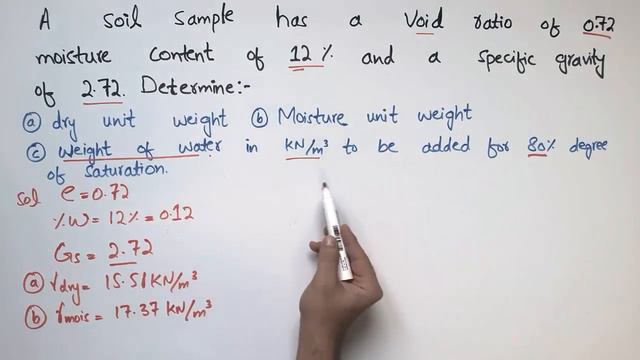 A soil sample has a void ratio of 0.72
moisture content of 12% and a specific gravity
of 2.72. Determine:-
ⓐ dry unit weight ⓑ Moisture unit weight
ⓒ weight of water in KN/m³ to be added for 80% degree
of saturation.
Sol e = 0.72
%W = 12% = 0.12
Gs = 2.72
ⓐ γdry = 15.51 KN/m³
ⓑ γmois = 17.37 KN/m³